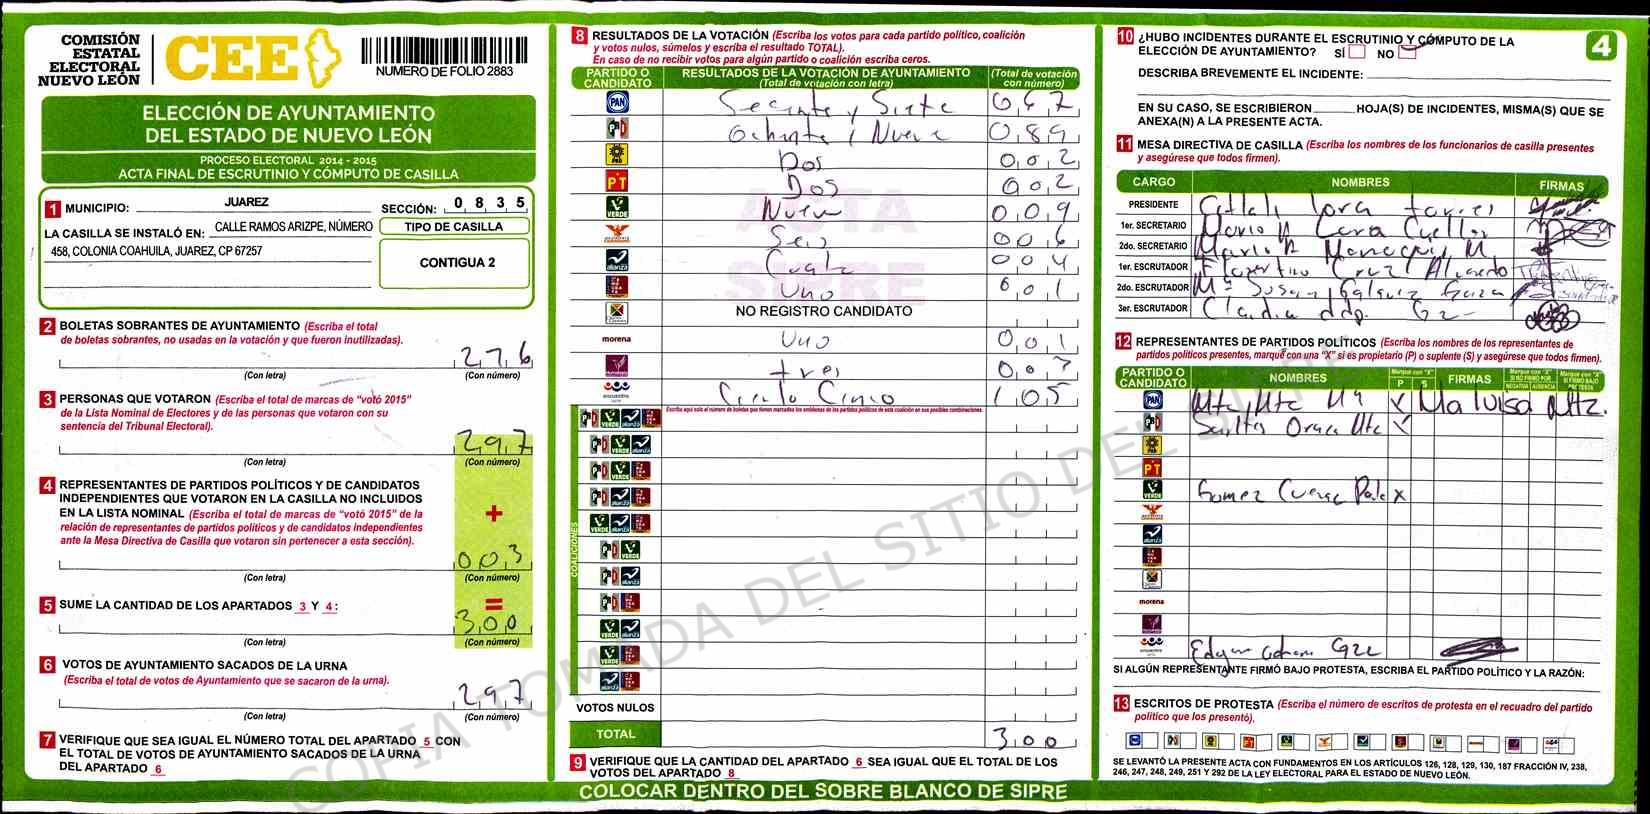 COMISIÓN
ESTATAL
ELECTORAL
NUEVO LEÓN
CEE
NUMERO DE FOLIO 2883
ELECCIÓN DE AYUNTAMIENTO
DEL ESTADO DE NUEVO LEÓN
PROCESO ELECTORAL 2014 - 2015
ACTA FINAL DE ESCRUTINIO Y CÓMPUTO DE CASILLA
1 MUNICIPIO: JUAREZ SECCIÓN: 0 8 3 5
LA CASILLA SE INSTALÓ EN: CALLE RAMOS ARIZPE, NÚMERO
458, COLONIA COAHUILA, JUAREZ, CP 67257
TIPO DE CASILLA
CONTIGUA 2
2 BOLETAS SOBRANTES DE AYUNTAMIENTO (Escriba el total
de boletas sobrantes, no usadas en la votación y que fueron inutilizadas).
276
(Con letra) (Con número)
3 PERSONAS QUE VOTARON (Escriba el total de marcas de "votó 2015"
de la Lista Nominal de Electores y de las personas que votaron con su
sentencia del Tribunal Electoral).
297
(Con letra) (Con número)
4 REPRESENTANTES DE PARTIDOS POLÍTICOS Y DE CANDIDATOS
INDEPENDIENTES QUE VOTARON EN LA CASILLA NO INCLUIDOS
EN LA LISTA NOMINAL (Escriba el total de marcas de "votó 2015" de la
relación de representantes de partidos políticos y de candidatos independientes
ante la Mesa Directiva de Casilla que votaron sin pertenecer a esta sección).
+
003
(Con letra) (Con número)
5 SUME LA CANTIDAD DE LOS APARTADOS 3 Y 4: =
300
(Con letra) (Con número)
6 VOTOS DE AYUNTAMIENTO SACADOS DE LA URNA
(Escriba el total de votos de Ayuntamiento que se sacaron de la urna).
297
(Con letra) (Con número)
7 VERIFIQUE QUE SEA IGUAL EL NÚMERO TOTAL DEL APARTADO 5 CON
EL TOTAL DE VOTOS DE AYUNTAMIENTO SACADOS DE LA URNA
DEL APARTADO 6
8 RESULTADOS DE LA VOTACIÓN (Escriba los votos para cada partido político, coalición
y votos nulos, súmelos y escriba el resultado TOTAL).
En caso de no recibir votos para algún partido o coalición escriba ceros.
PARTIDO O CANDIDATO RESULTADOS DE LA VOTACIÓN DE AYUNTAMIENTO (Total de votación con letra) (Total de votación con número)
PAN Secenta y Siete 067
PRI Ochenta y Nueve 089
PRD Dos 002
PT Dos 002
VERDE Nueve 009
Seis 006
alianza 004
Uno 001
NO REGISTRO CANDIDATO
morena Uno 001
tres
encuentro Ciento Cinco 105
Escriba aquí solo el número de boletas que tienen marcados los emblemas de los partidos políticos de esta coalición en sus posibles combinaciones.
COALICIONES
VOTOS NULOS
TOTAL 300
9 VERIFIQUE QUE LA CANTIDAD DEL APARTADO 6 SEA IGUAL QUE EL TOTAL DE LOS
VOTOS DEL APARTADO 8
COLOCAR DENTRO DEL SOBRE BLANCO DE SIPRE
ACTA
SIPRE
COPIA TOMADA DEL SITIO DEL SIPRE
10 ¿HUBO INCIDENTES DURANTE EL ESCRUTINIO Y CÓMPUTO DE LA
ELECCIÓN DE AYUNTAMIENTO? SÍ NO
4
DESCRIBA BREVEMENTE EL INCIDENTE:
EN SU CASO, SE ESCRIBIERON HOJA(S) DE INCIDENTES, MISMA(S) QUE SE
ANEXA(N) A LA PRESENTE ACTA.
11 MESA DIRECTIVA DE CASILLA (Escriba los nombres de los funcionarios de casilla presentes
y asegúrese que todos firmen).
CARGO NOMBRES FIRMAS
PRESIDENTE
1er. SECRETARIO
2do. SECRETARIO
1er. ESCRUTADOR Cruz
2do. ESCRUTADOR Mª Susana
3er. ESCRUTADOR Claudia
12 REPRESENTANTES DE PARTIDOS POLÍTICOS (Escriba los nombres de los representantes de
partidos políticos presentes, marque con una "X" si es propietario (P) o suplente (S) y asegúrese que todos firmen).
PARTIDO O CANDIDATO NOMBRES Marque con "X" P S FIRMAS Marque con "X" SI NO FIRMO POR NEGATIVA AUSENCIA Marque con "X" SI FIRMO BAJO PROTESTA
PAN Mtz Mtz Ma X Ma Luisa Mtz.
PRI
PRD
PT
VERDE Gomez X
morena
encuentro Edgar
SI ALGÚN REPRESENTANTE FIRMÓ BAJO PROTESTA, ESCRIBA EL PARTIDO POLÍTICO Y LA RAZÓN:
13 ESCRITOS DE PROTESTA (Escriba el número de escritos de protesta en el recuadro del partido
político que los presentó).
SE LEVANTÓ LA PRESENTE ACTA CON FUNDAMENTOS EN LOS ARTÍCULOS 126, 128, 129, 130, 187 FRACCIÓN IV, 238,
246, 247, 248, 249, 251 Y 292 DE LA LEY ELECTORAL PARA EL ESTADO DE NUEVO LEÓN.